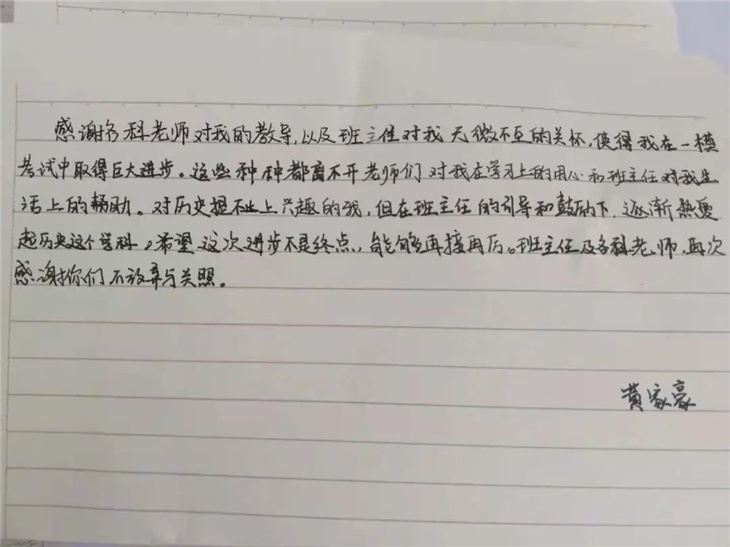 感谢各科老师对我的教导,以及班主任对我无微不至的关怀,使得我在一模
考试中取得巨大进步。这些种种都离不开老师们对我在学习上的用心和班主任对我生
活上的帮助。对历史提不上兴趣的我,但在班主任的引导和鼓励下,逐渐热爱
起历史这个学科,希望这次进步不是终点,能够再接再厉。班主任及各科老师,再次
感谢你们不放弃与关照。
黄家豪